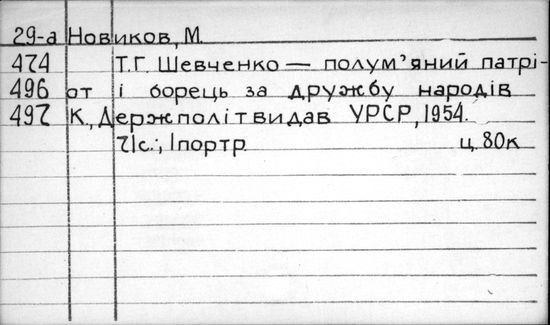 29-а Новиков, М.
474 Т.Г. Шевченко — полум'яний патрі-
496 от і борець за дружбу народів
497 К., Держполітвидав УРСР, 1954.
71с., 1портр. ц. 80к